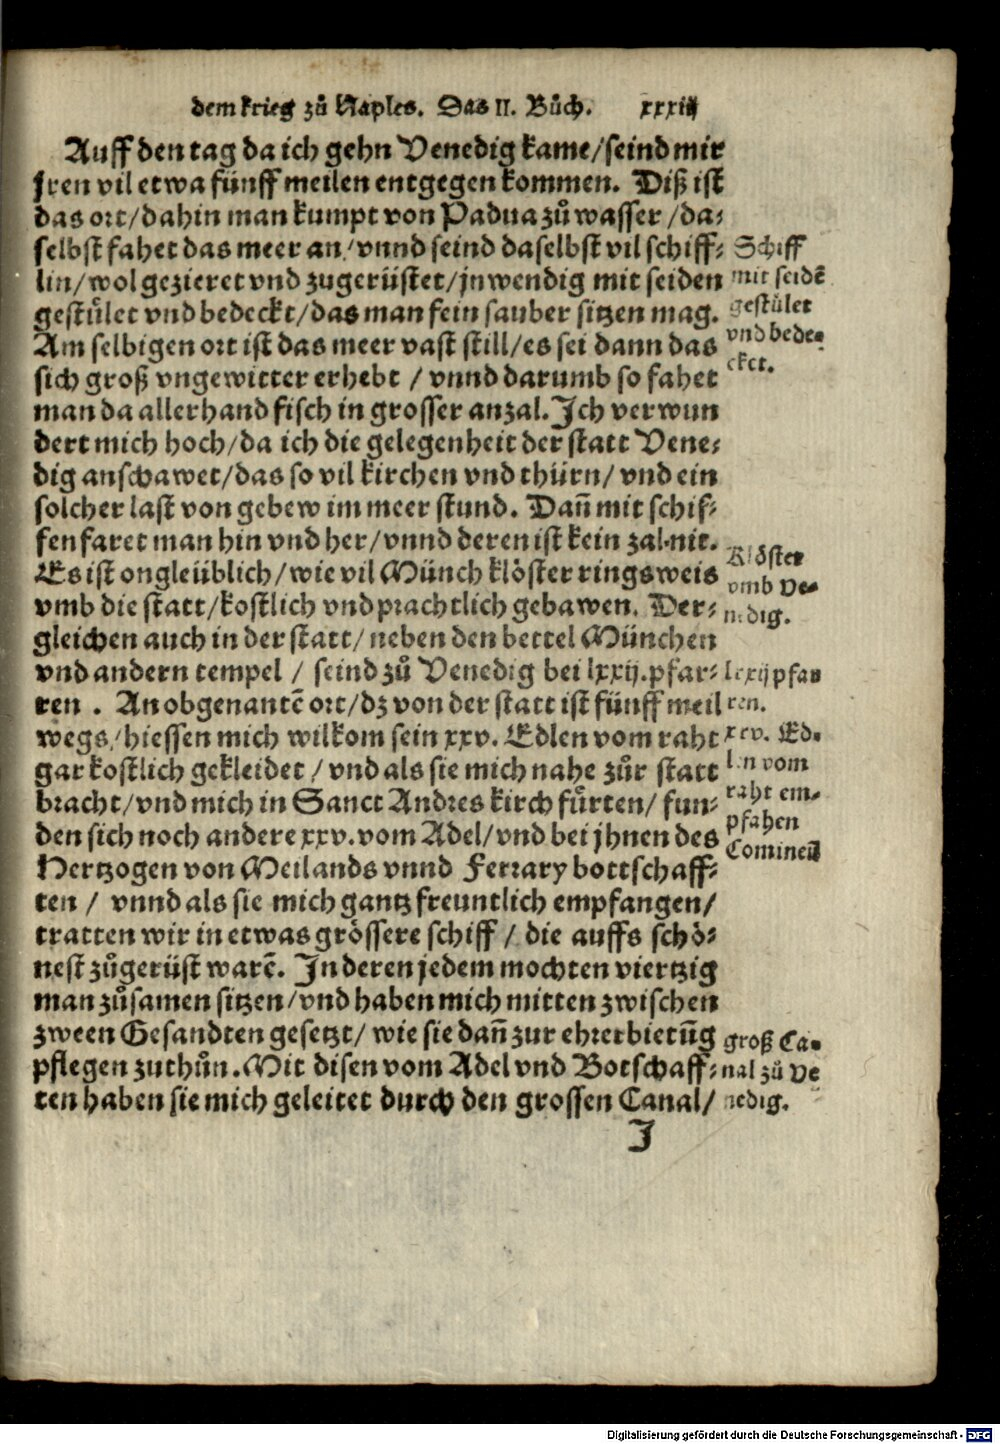 dem krieg zů Naples. Das II. Bůch. xxxiij
Auff den tag da ich gehn Venedig kame/seind mir
jren vil etwa fünff meilen entgegen kommen. Diß ist
das ort/dahin man kumpt von Padua zů wasser/da-
selbst fahet das meer an/vnnd seind daselbst vil schiff-
lin/wol gezieret vnd zugerüstet/jnwendig mit seiden
gestůlet vnd bedeckt/das man fein sauber sitzen mag.
Am selbigen ort ist das meer vast still/es sei dann das
sich groß vngewitter erhebt/vnnd darumb so fahet
man da allerhand fisch in grosser anzal. Ich verwun
dert mich hoch/da ich die gelegenheit der statt Vene-
dig anschawet/das so vil kirchen vnd thürn/vnd ein
solcher last von gebew im meer stund. Dañ mit schif-
fen faret man hin vnd her/vnnd deren ist kein zal nit.
Es ist ongleüblich/wie vil Münch klöster ringsweis
vmb die statt/kostlich vnd prachtlich gebawen. Der-
gleichen auch in der statt/neben den bettel München
vnd andern tempel/seind zů Venedig bei lxxij.pfar-
ren. An obgenantē ort/dz von der statt ist fünff meil
wegs/hiessen mich wilkom sein xxv. Edlen vom raht
gar kostlich gekleidet/vnd als sie mich nahe zůr statt
bracht/vnd mich in Sanct Andres kirch fůrten/fun-
den sich noch andere xxv. vom Adel/vnd bei jhnen des
Hertzogen von Meilands vnnd Ferrary bottschaff-
ten/vnnd als sie mich gantz freuntlich empfangen/
tratten wir in etwas grössere schiff/die auffs schö-
nest zůgerüst warē. In deren jedem mochten viertzig
man zůsamen sitzen/vnd haben mich mitten zwischen
zween Gesandten gesetzt/wie sie dañ zur ehrerbietūg
pflegen zuthůn. Mit disen vom Adel vnd Botschaff-
ten haben sie mich geleitet durch den grossen Canal/
I
Schiff
mit seidē
gestület
vnd bede-
cket.
Klöster
vmb Ve-
nedig.
lxxij pfar
ren.
xxv. Ed-
len vom
raht em-
pfahen
Comineū
groß Ca-
nal zů Ve
nedig.
Digitalisierung gefördert durch die Deutsche Forschungsgemeinschaft - DFG